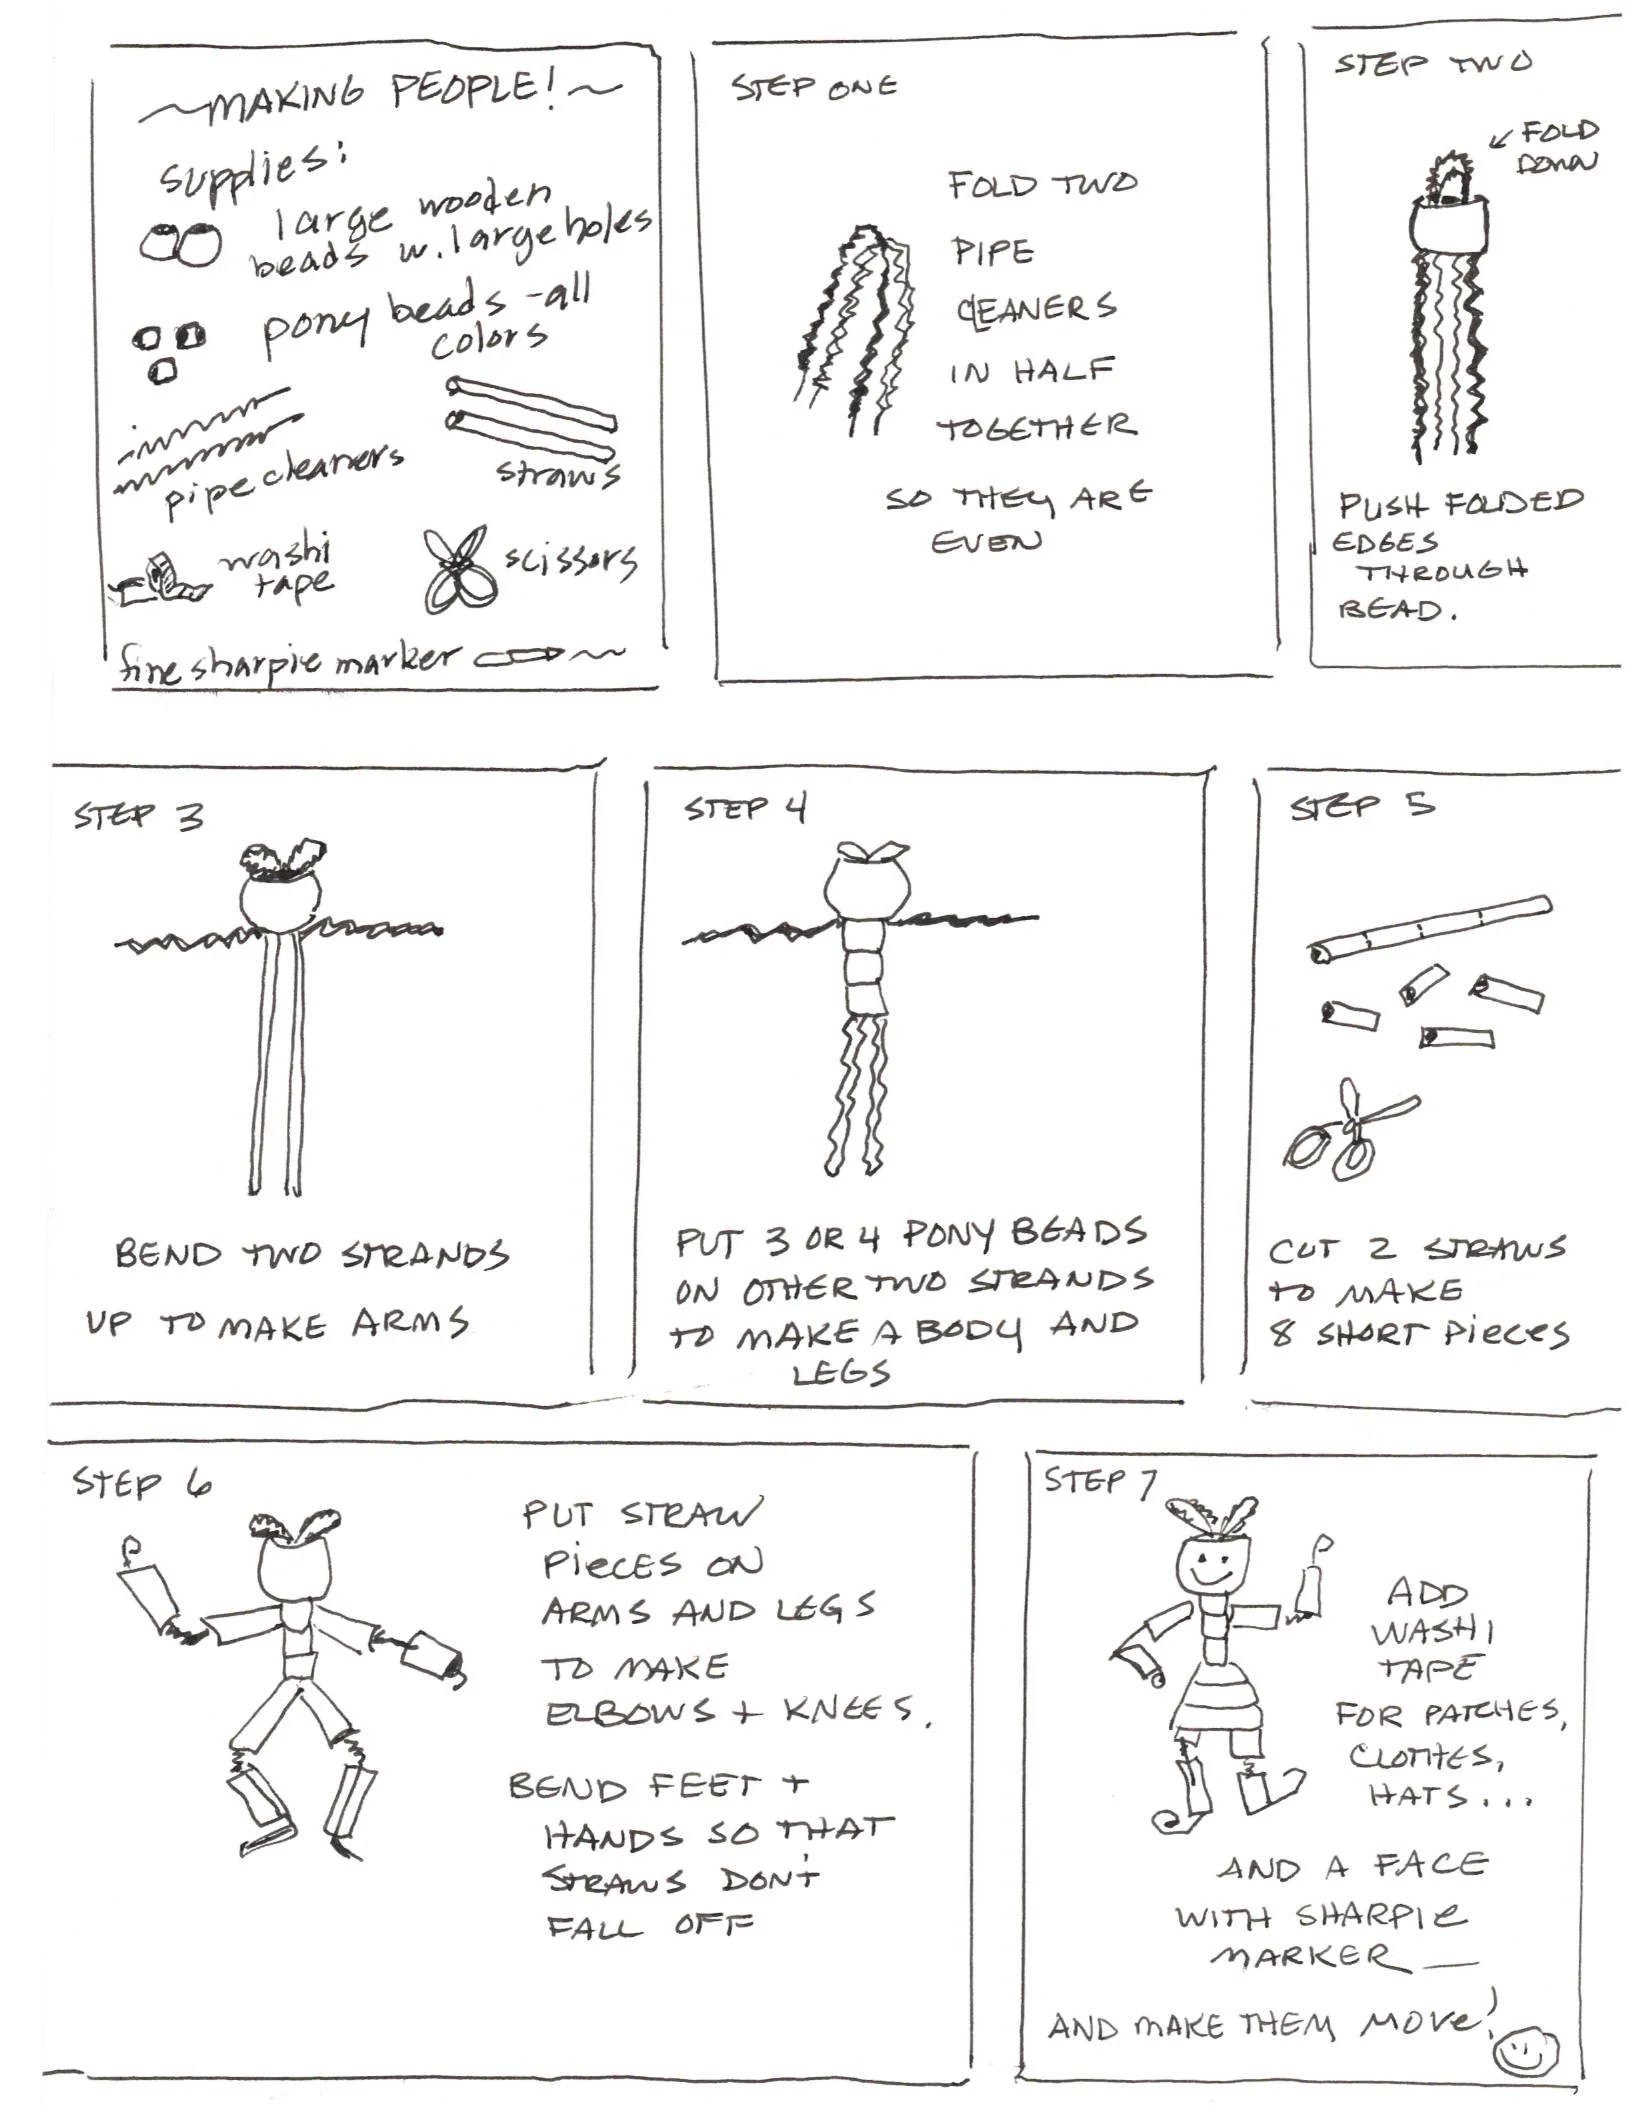 ~MAKING PEOPLE!~
supplies:
large wooden
beads w. large holes
pony beads - all
colors
pipe cleaners
straws
washi
tape
scissors
fine sharpie marker
STEP ONE
FOLD TWO
PIPE
CLEANERS
IN HALF
TOGETHER
SO THEY ARE
EVEN
STEP TWO
FOLD
DOWN
PUSH FOLDED
EDGES
THROUGH
BEAD.
STEP 3
BEND TWO STRANDS
UP TO MAKE ARMS
STEP 4
PUT 3 OR 4 PONY BEADS
ON OTHER TWO STRANDS
TO MAKE A BODY AND
LEGS
STEP 5
CUT 2 STRAWS
TO MAKE
8 SHORT PIECES
STEP 6
PUT STRAW
PIECES ON
ARMS AND LEGS
TO MAKE
ELBOWS + KNEES.
BEND FEET +
HANDS SO THAT
STRAWS DON'T
FALL OFF
STEP 7
ADD
WASHI
TAPE
FOR PATCHES,
CLOTHES,
HATS...
AND A FACE
WITH SHARPIE
MARKER —
AND MAKE THEM MOVE!